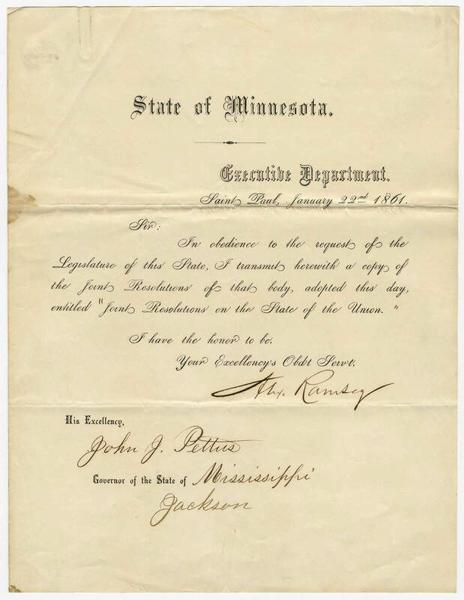 State of Minnesota.
Executive Department.
Saint Paul, January 22nd 1861.
Sir:
In obedience to the request of the
Legislature of this State, I transmit herewith a copy of
the Joint Resolutions of that body, adopted this day,
entitled "Joint Resolutions on the State of the Union."
I have the honor to be,
Your Excellency's Obdt Servt.
Alex. Ramsey
His Excellency,
John J. Pettus
Governor of the State of Mississippi
Jackson